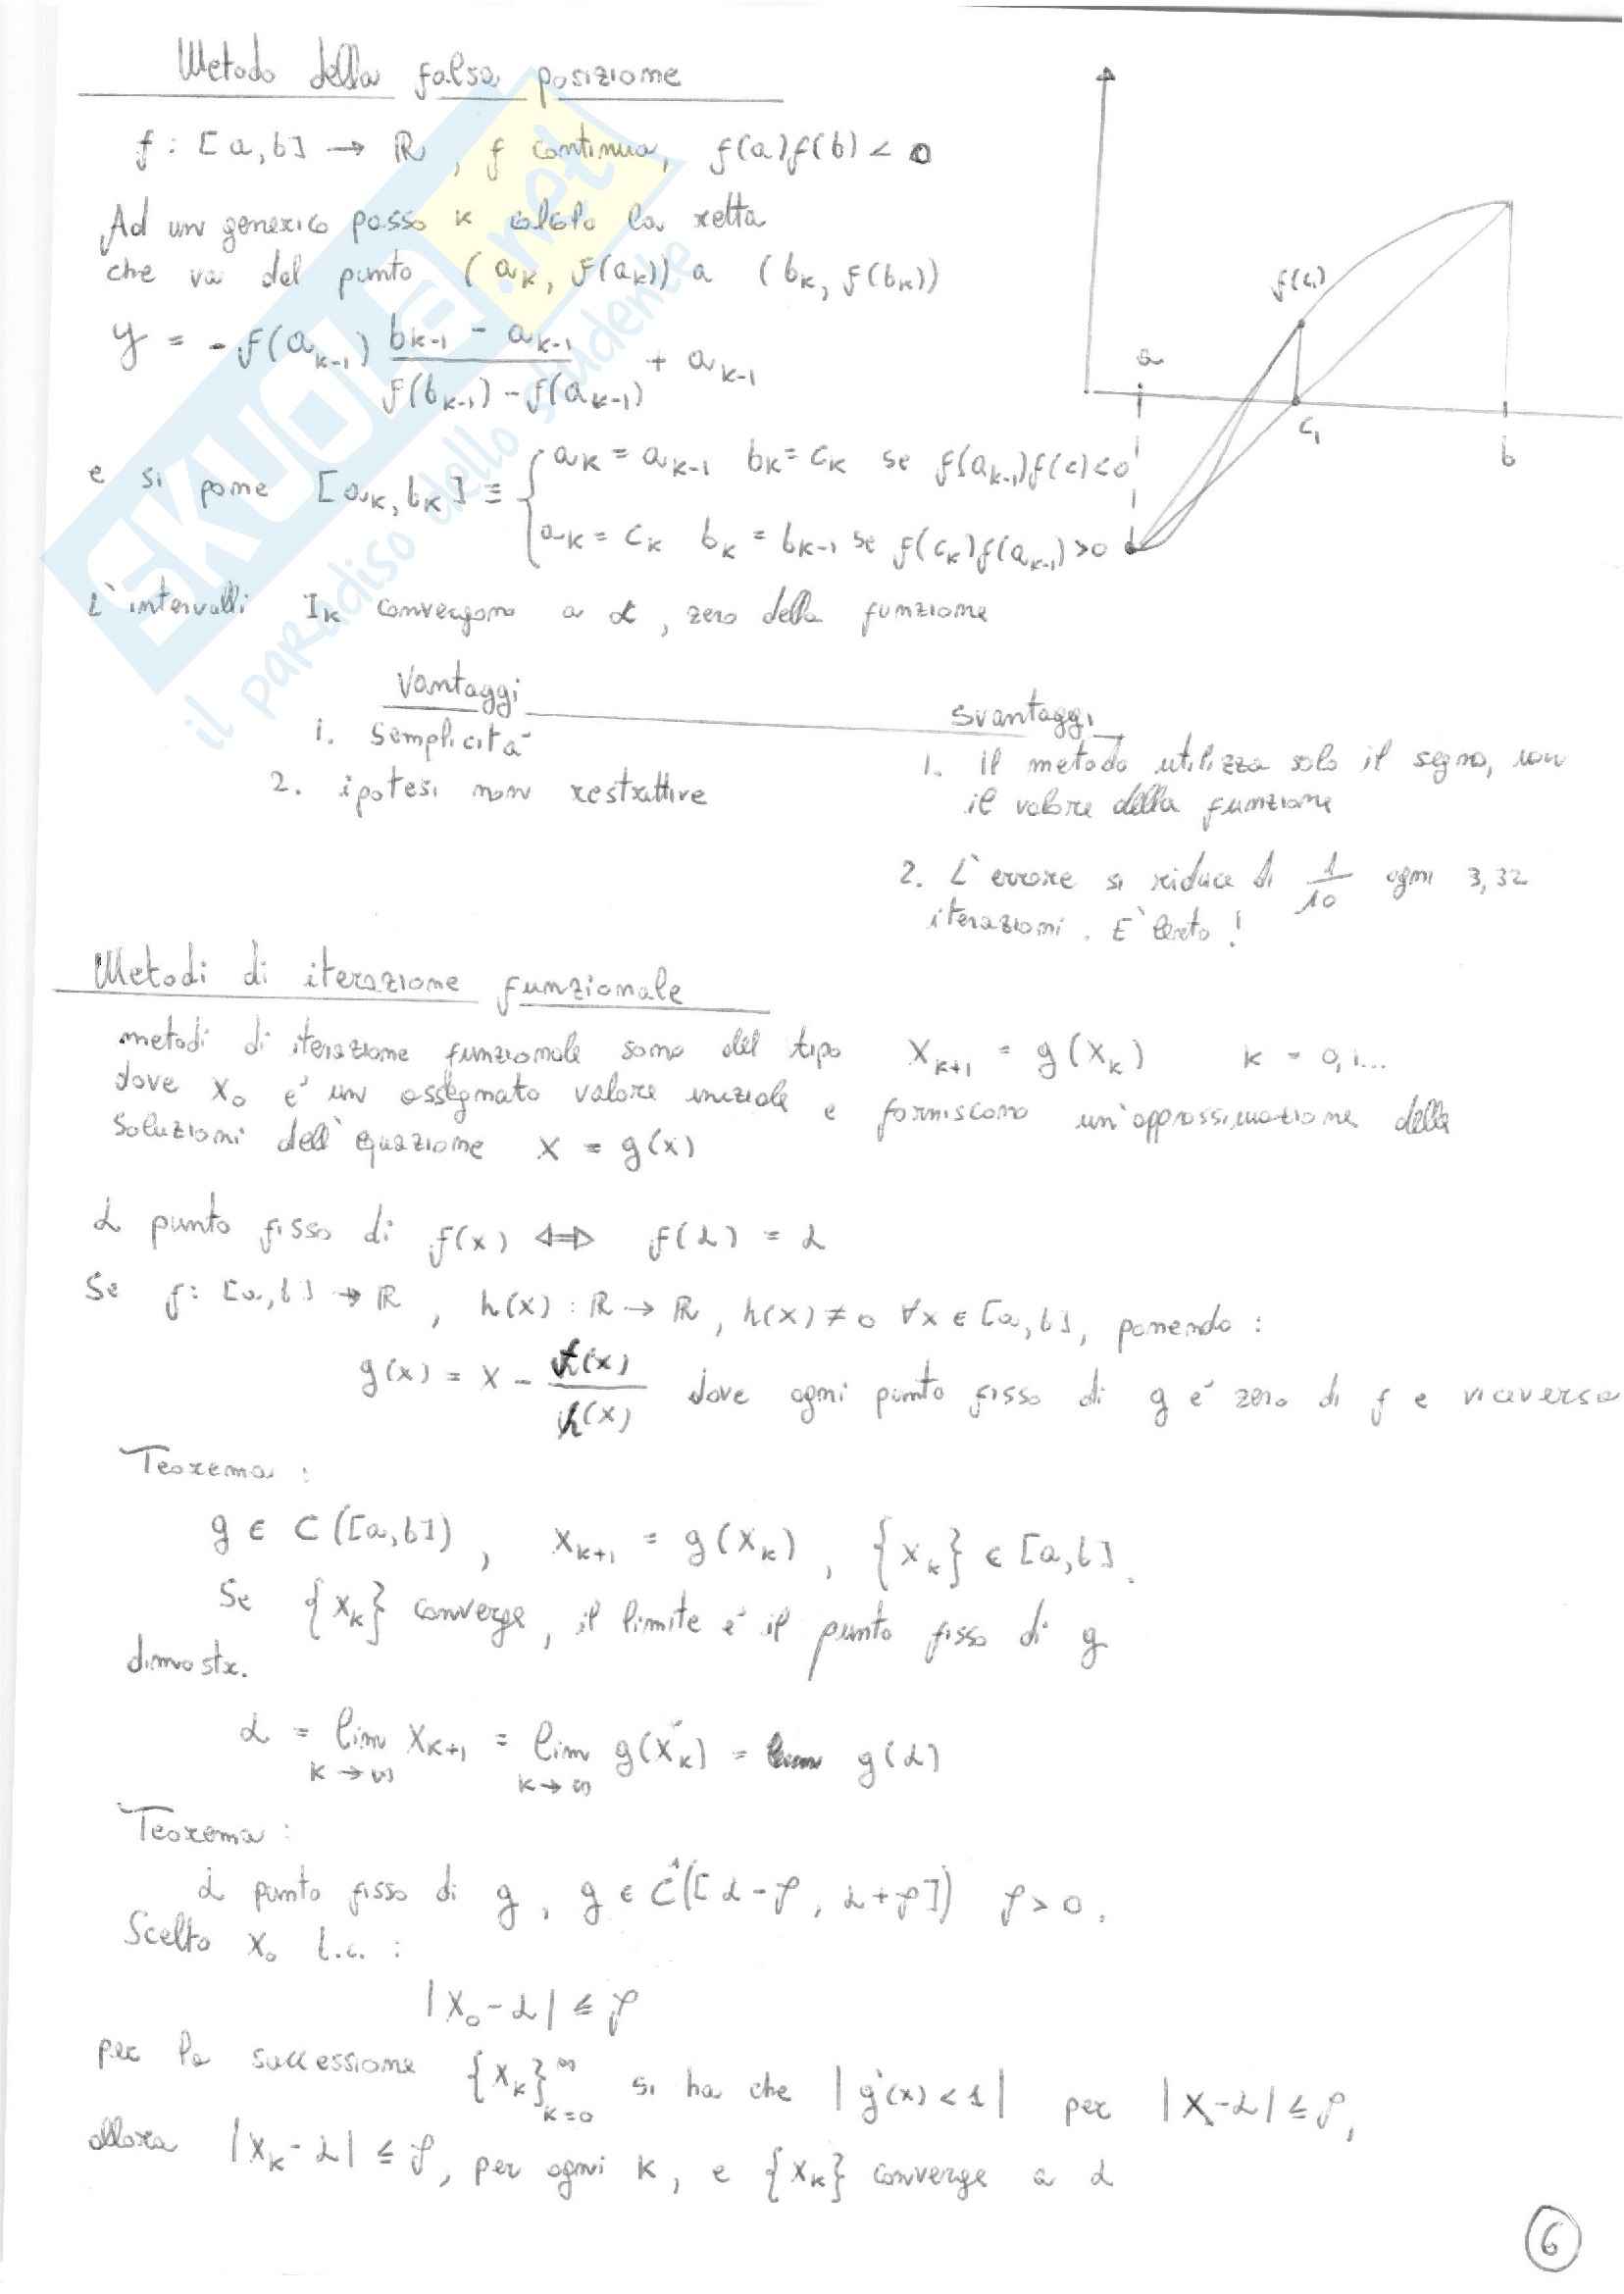 Metodo della falsa posizione
f : [a,b] → ℝ , f continua, f(a)f(b) < 0
Ad un generico passo k calcolo la retta
che va dal punto (a_k, f(a_k)) a (b_k, f(b_k))
y = - f(a_{k-1}) \frac{b_{k-1} - a_{k-1}}{f(b_{k-1}) - f(a_{k-1})} + a_{k-1}
e si pone [a_k, b_k] ≡ { a_k = a_{k-1} b_k = c_k se f(a_{k-1})f(c) < 0
a_k = c_k b_k = b_{k-1} se f(c_k)f(a_{k-1}) > 0
L'intervalli I_k convergono a α, zero della funzione
a
f(c_1)
c_1
b
Vantaggi
1. Semplicità
2. ipotesi non restrittive
Svantaggi
1. il metodo utilizza solo il segno, non
il valore della funzione
2. L'errore si riduce di \frac{1}{10} ogni 3,32
iterazioni. E' lento!
Metodi di iterazione funzionale
metodi di iterazione funzionale sono del tipo x_{k+1} = g(x_k) k = 0,1...
dove x_0 è un assegnato valore iniziale e forniscono un'approssimazione delle
soluzioni dell'equazione x = g(x)
α punto fisso di f(x) ⟺ f(α) = α
Se f: [a,b] → ℝ , h(x) : ℝ → ℝ , h(x) ≠ 0 ∀x ∈ [a,b], ponendo :
g(x) = x - \frac{f(x)}{h(x)} dove ogni punto fisso di g è zero di f e viceversa
Teorema :
g ∈ C([a,b]) , x_{k+1} = g(x_k) , {x_k} ∈ [a,b].
Se {x_k} converge, il limite è il punto fisso di g
dimostr.
α = lim_{k→∞} x_{k+1} = lim_{k→∞} g(x_k) = g(α)
Teorema :
α punto fisso di g, g ∈ C^1([α-ρ, α+ρ]) ρ > 0.
Scelto x_0 t.c. :
|x_0 - α| ≤ ρ
per la successione {x_k}_{k=0}^∞ si ha che |g'(x) < 1| per |x-α| ≤ ρ,
allora |x_k - α| ≤ ρ, per ogni k, e {x_k} converge a α
6
SKUOLA.net
il paradiso dello studente